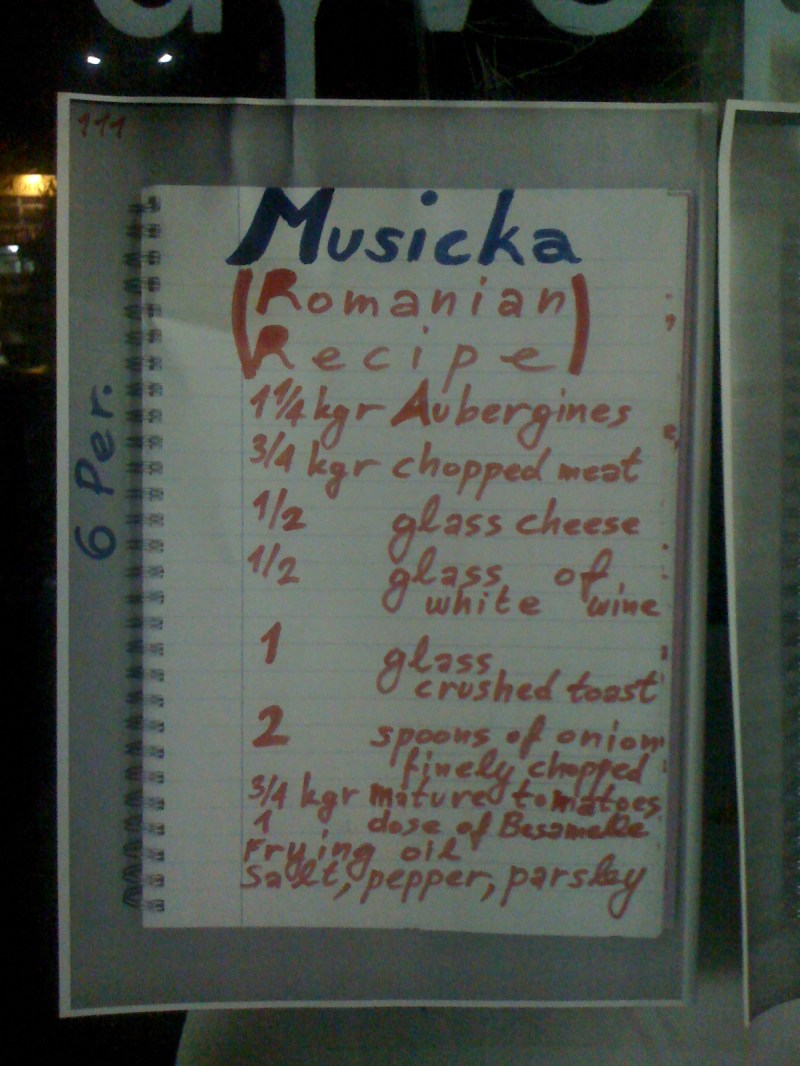 111
Musicka
(Romanian
Recipe)
6 Per.
1 1/4 kgr Aubergines
3/4 kgr chopped meat
1/2 glass cheese
1/2 glass of
white wine
1 glass
crushed toast
2 spoons of onion
finely chopped
3/4 kgr mature tomatoes
1 dose of Besamelle
Frying oil
Salt, pepper, parsley